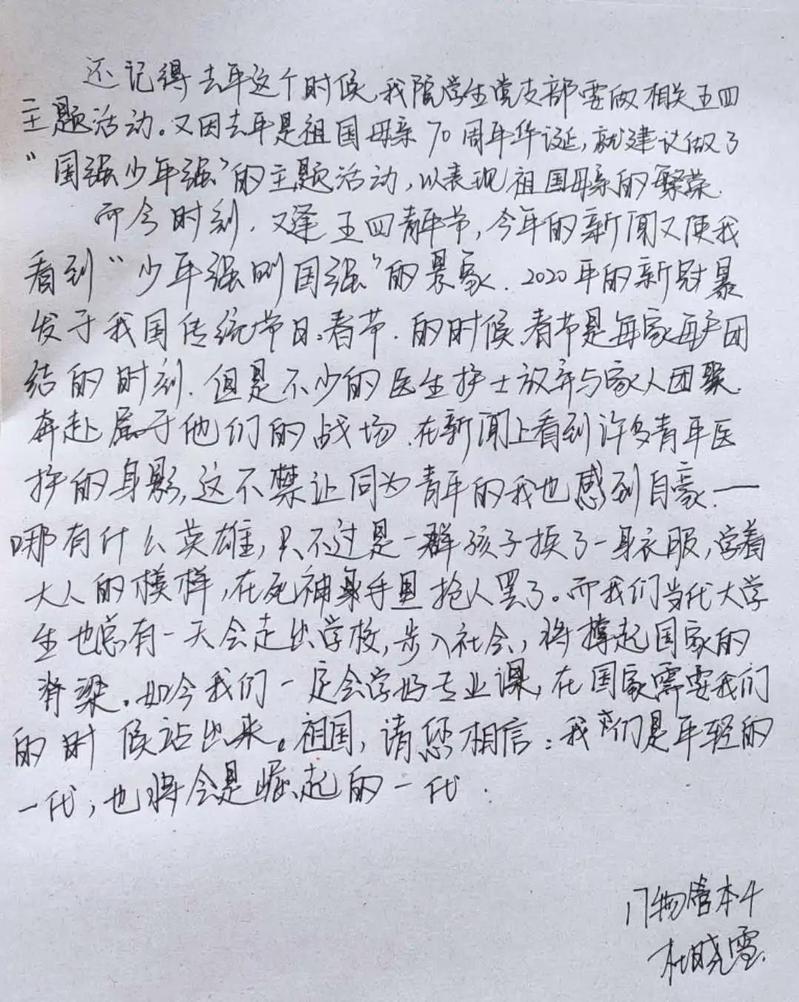 还记得去年这个时候,我院学生党支部要做相关五四
主题活动。又因去年是祖国母亲70周年华诞,就建议做了
"国强少年强"的主题活动,以表现祖国母亲的繁荣.
而今时刻.又逢五四青年节,今年的新闻又使我
看到"少年强则国强"的景象.2020年的新冠暴
发于我国传统节日:春节.的时候.春节是每家每户团
结的时刻.但是不少的医生护士放弃与家人团聚
奔赴属于他们的战场.在新闻上看到许多青年医
护的身影,这不禁让同为青年的我也感到自豪.—
哪有什么英雄,只不过是一群孩子换了一身衣服,学着
大人的模样,在死神手里抢人罢了。而我们当代大学
生也总有一天会走出学校,步入社会,将撑起国家的
脊梁。如今我们一定会学好专业课,在国家需要我们
的时候站出来。祖国,请您相信:我们是年轻的
一代,也将会是崛起的一代.
17物管本4
杜晓雪.